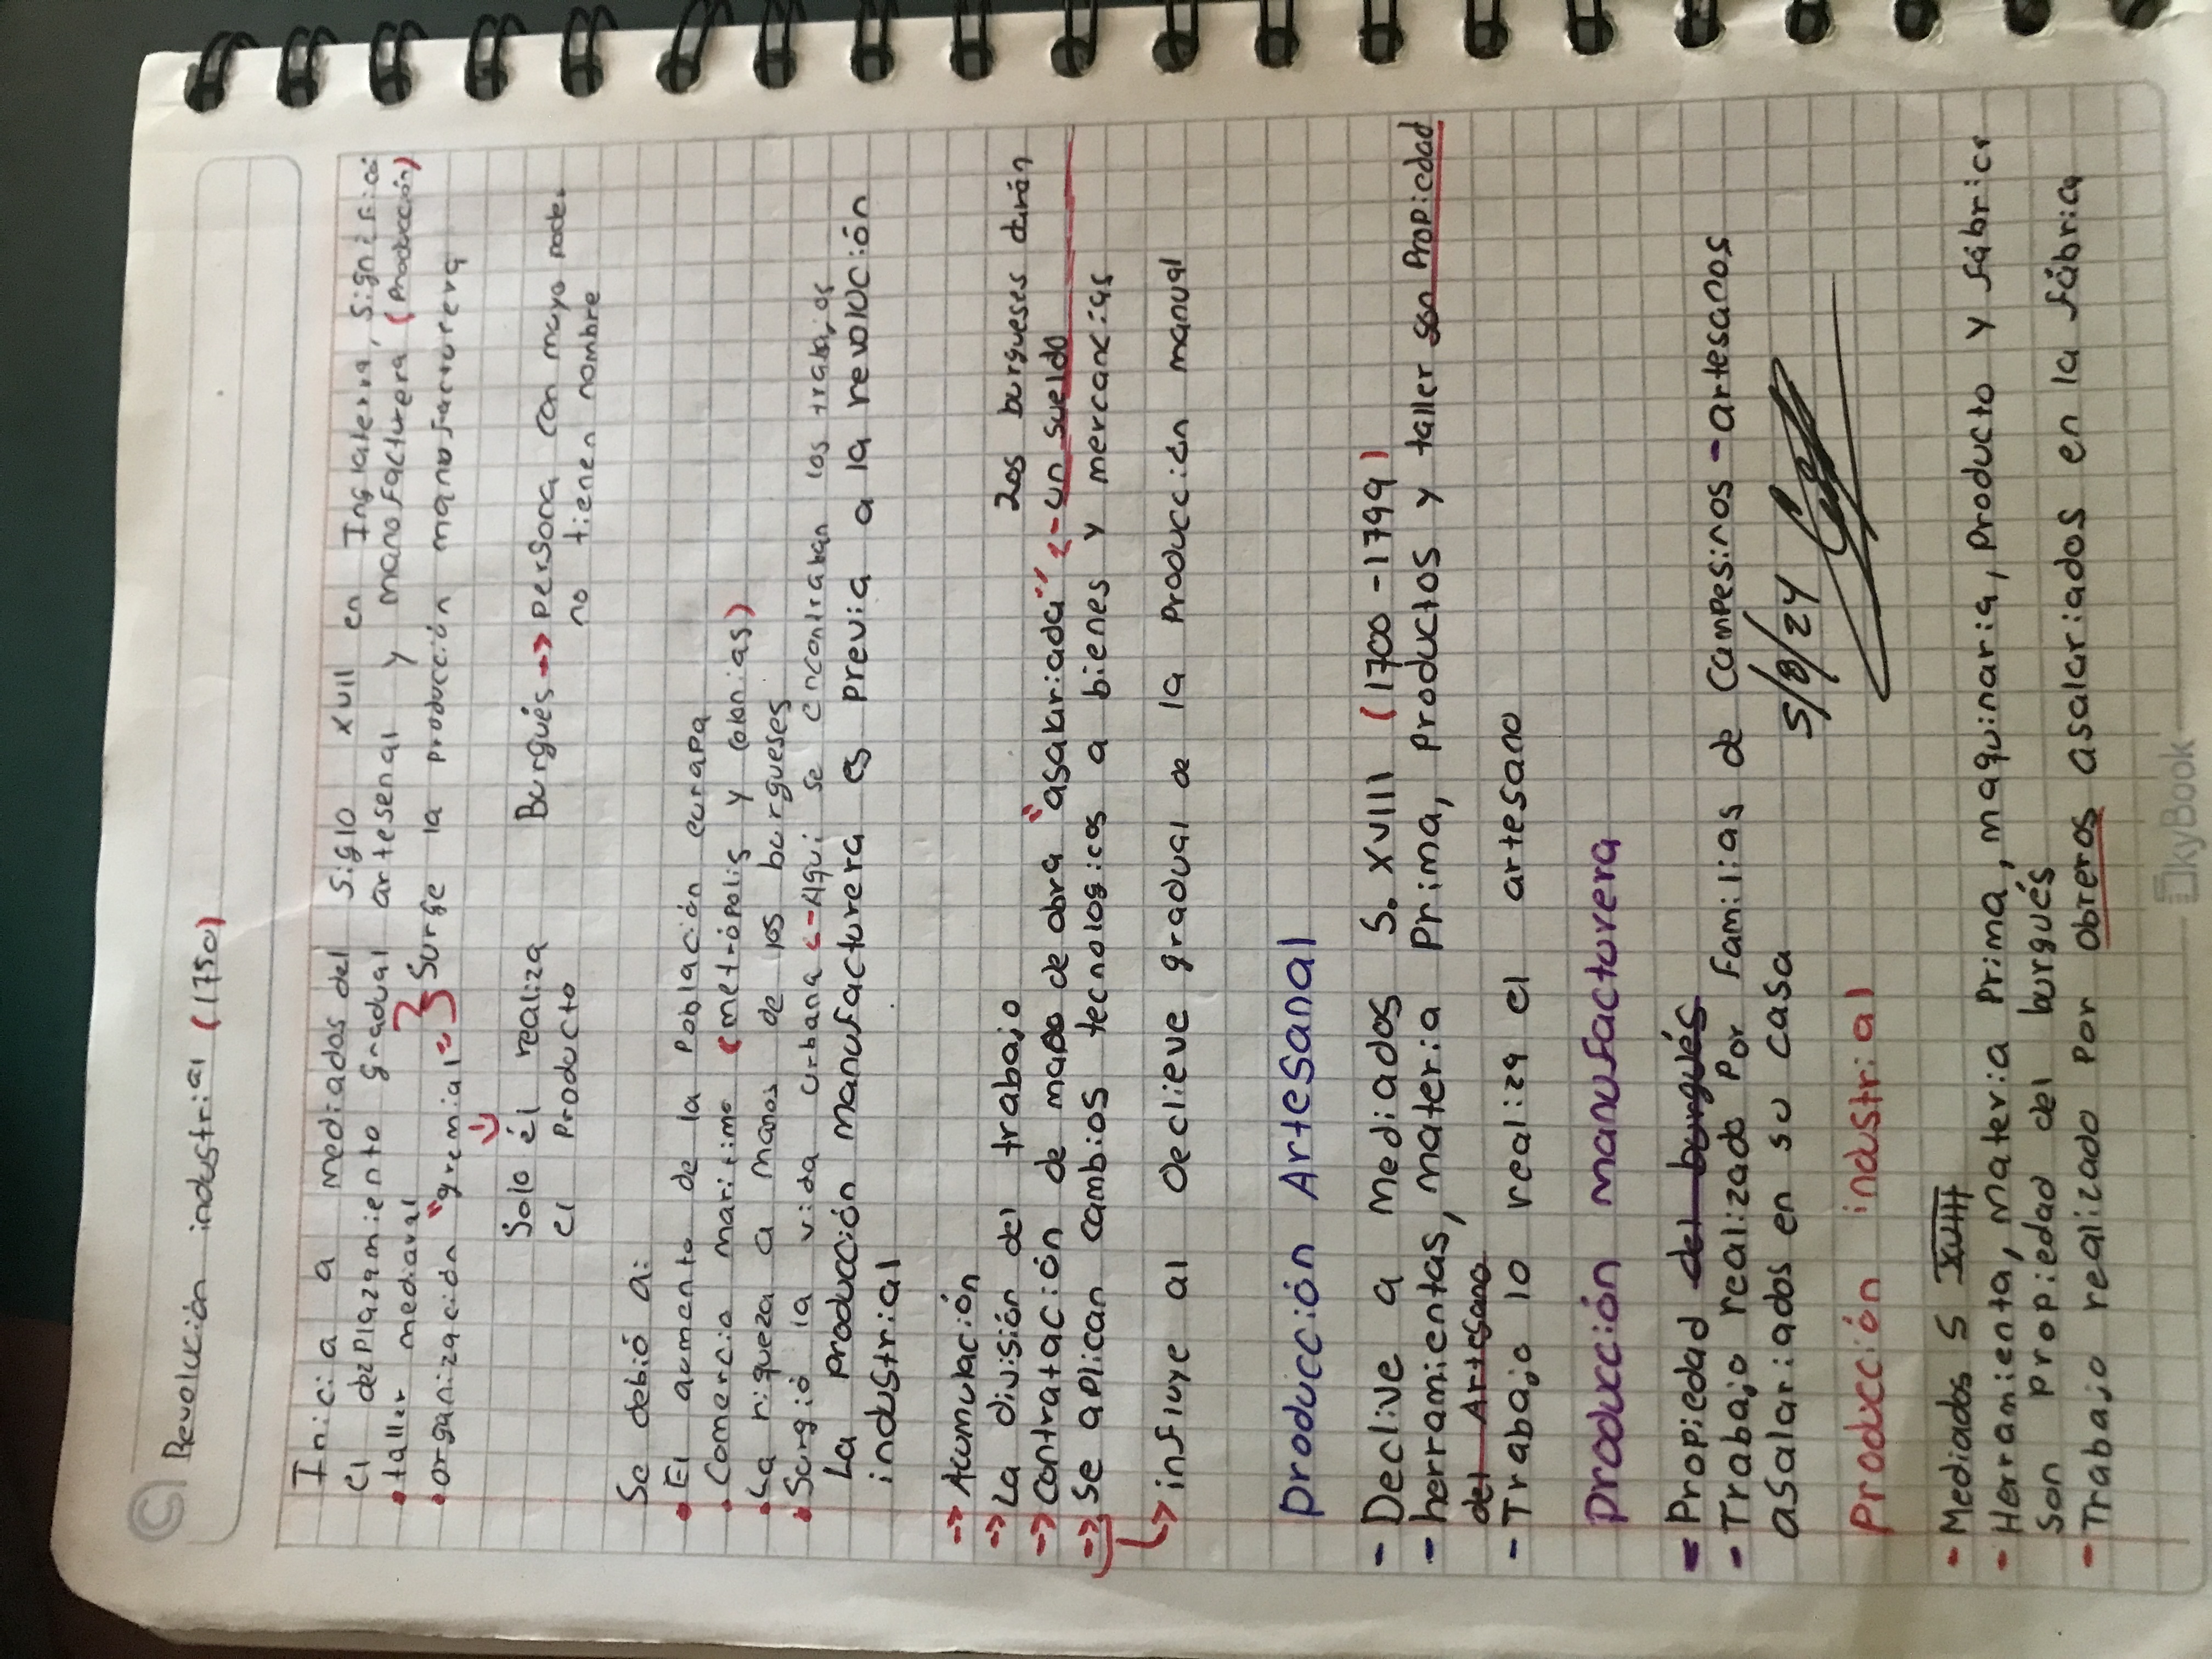 Revolución industrial (1750)
Inicia a mediados del Siglo XVII en Inglaterra, significó
el dezplazamiento gradual artesenal y manofacturera (Producción)
• taller mediaval
• organización "gremial" } Surge la producción manofacturera
Solo él realiza
el Producto
Burgués -> persona con mayo poder
no tienen nombre
Se debió a:
• El aumento de la Población eurapa
• Comercio maritimo (metrópolis y colonias)
• La riqueza a manos de los burgueses
• Surgió la vida urbana <- Aqui se encontraban los trabajos
La Producción Manufacturera es previa a la revolución
industrial
-> Acumulación
-> La división del trabajo
Los burgueses darán
-> contratación de mano de obra "asalariada" <- un sueldo
-> Se aplican cambios tecnologicos a bienes y mercancias
-> influye al declieve gradual de la Producción manual
Producción Artesanal
- Declive a Mediados S. XVIII (1700 - 1799)
- herramientas, materia Prima, Productos y taller son Propiedad
del Artesano
- Trabajo lo realiza el artesano
Producción manufacturera
- Propiedad del burgués
- Trabajo realizado Por Familias de Campesinos - artesanos
asalariados en su casa
5/8/24
Producción industrial
- Mediados S XVIII
- Herramienta, Materia Prima, maquinaria, Producto y fábrica
son Propiedad del burgués
- Trabajo realizado Por obreros asalariados en la fábrica
SkyBook